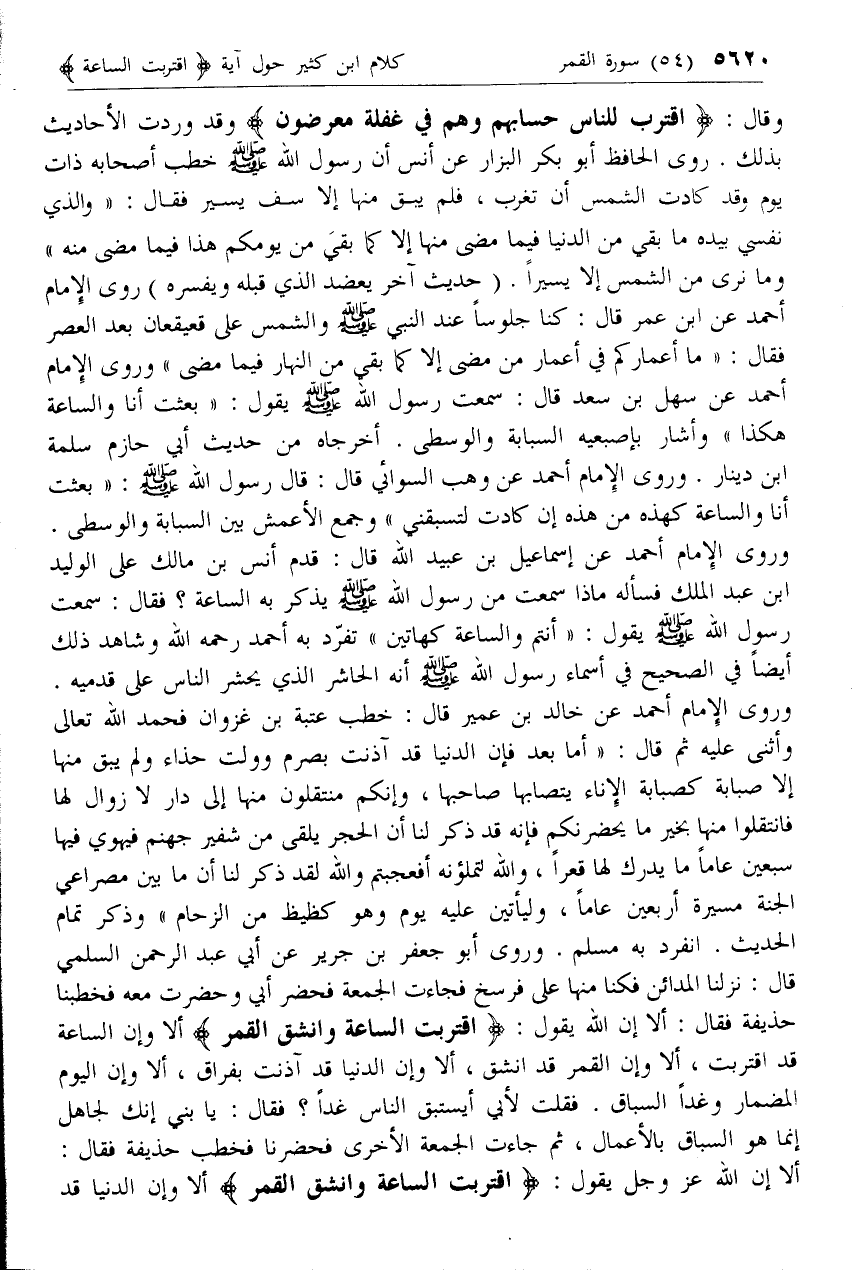 ٥٦٢٠ (٥٤) سورة القمر كلام ابن كثير حول آية ﴿ اقتربت الساعة ﴾
وقال : ﴿ اقترب للناس حسابهم وهم في غفلة معرضون ﴾ وقد وردت الأحاديث
بذلك . روى الحافظ أبو بكر البزار عن أنس أن رسول الله ﷺ خطب أصحابه ذات
يوم وقد كادت الشمس أن تغرب ، فلم يبق منها إلا سف يسير فقال : « والذي
نفسي بيده ما بقي من الدنيا فيما مضى منها إلا كما بقيَ من يومكم هذا فيما مضى منه »
وما نرى من الشمس إلا يسيراً . ( حديث آخر يعضد الذي قبله ويفسره ) روى الإمام
أحمد عن ابن عمر قال : كنا جلوساً عند النبي ﷺ والشمس على قعيقعان بعد العصر
فقال : « ما أعماركم في أعمار من مضى إلا كما بقي من النهار فيما مضى » وروى الإمام
أحمد عن سهل بن سعد قال : سمعت رسول الله ﷺ يقول : « بعثت أنا والساعة
هكذا » وأشار بإصبعيه السبابة والوسطى . أخرجاه من حديث أبي حازم سلمة
ابن دينار . وروى الإمام أحمد عن وهب السوائي قال : قال رسول الله ﷺ : « بعثت
أنا والساعة كهذه من هذه إن كادت لتسبقني » وجمع الأعمش بين السبابة والوسطى .
وروى الإمام أحمد عن إسماعيل بن عبيد الله قال : قدم أنس بن مالك على الوليد
ابن عبد الملك فسأله ماذا سمعت من رسول الله ﷺ يذكر به الساعة ؟ فقال : سمعت
رسول الله ﷺ يقول : « أنتم والساعة كهاتين » تفرّد به أحمد رحمه الله وشاهد ذلك
أيضاً في الصحيح في أسماء رسول الله ﷺ أنه الحاشر الذي يحشر الناس على قدميه .
وروى الإمام أحمد عن خالد بن عمير قال : خطب عتبة بن غزوان فحمد الله تعالى
وأثنى عليه ثم قال : « أما بعد فإن الدنيا قد آذنت بصرم وولت حذاء ولم يبق منها
إلا صبابة كصبابة الإناء يتصابها صاحبها ، وإنكم منتقلون منها إلى دار لا زوال لها
فانتقلوا منها بخير ما يحضرنكم فإنه قد ذكر لنا أن الحجر يلقى من شفير جهنم فيهوي فيها
سبعين عاماً ما يدرك لها قعراً ، والله لتملؤنه أفعجبتم والله لقد ذكر لنا أن ما بين مصراعي
الجنة مسيرة أربعين عاماً ، وليأتين عليه يوم وهو كظيظ من الزحام » وذكر تمام
الحديث . انفرد به مسلم . وروى أبو جعفر بن جرير عن أبي عبد الرحمن السلمي
قال : نزلنا المدائن فكنا منها على فرسخ فجاءت الجمعة فحضر أبي وحضرت معه فخطبنا
حذيفة فقال : ألا إن الله يقول : ﴿ اقتربت الساعة وانشق القمر ﴾ ألا وإن الساعة
قد اقتربت ، ألا وإن القمر قد انشق ، ألا وإن الدنيا قد آذنت بفراق ، ألا وإن اليوم
المضمار وغداً السباق . فقلت لأبي أيستبق الناس غداً ؟ فقال : يا بني إنك لجاهل
إنما هو السباق بالأعمال ، ثم جاءت الجمعة الأخرى فحضرنا فخطب حذيفة فقال :
ألا إن الله عز وجل يقول : ﴿ اقتربت الساعة وانشق القمر ﴾ ألا وإن الدنيا قد